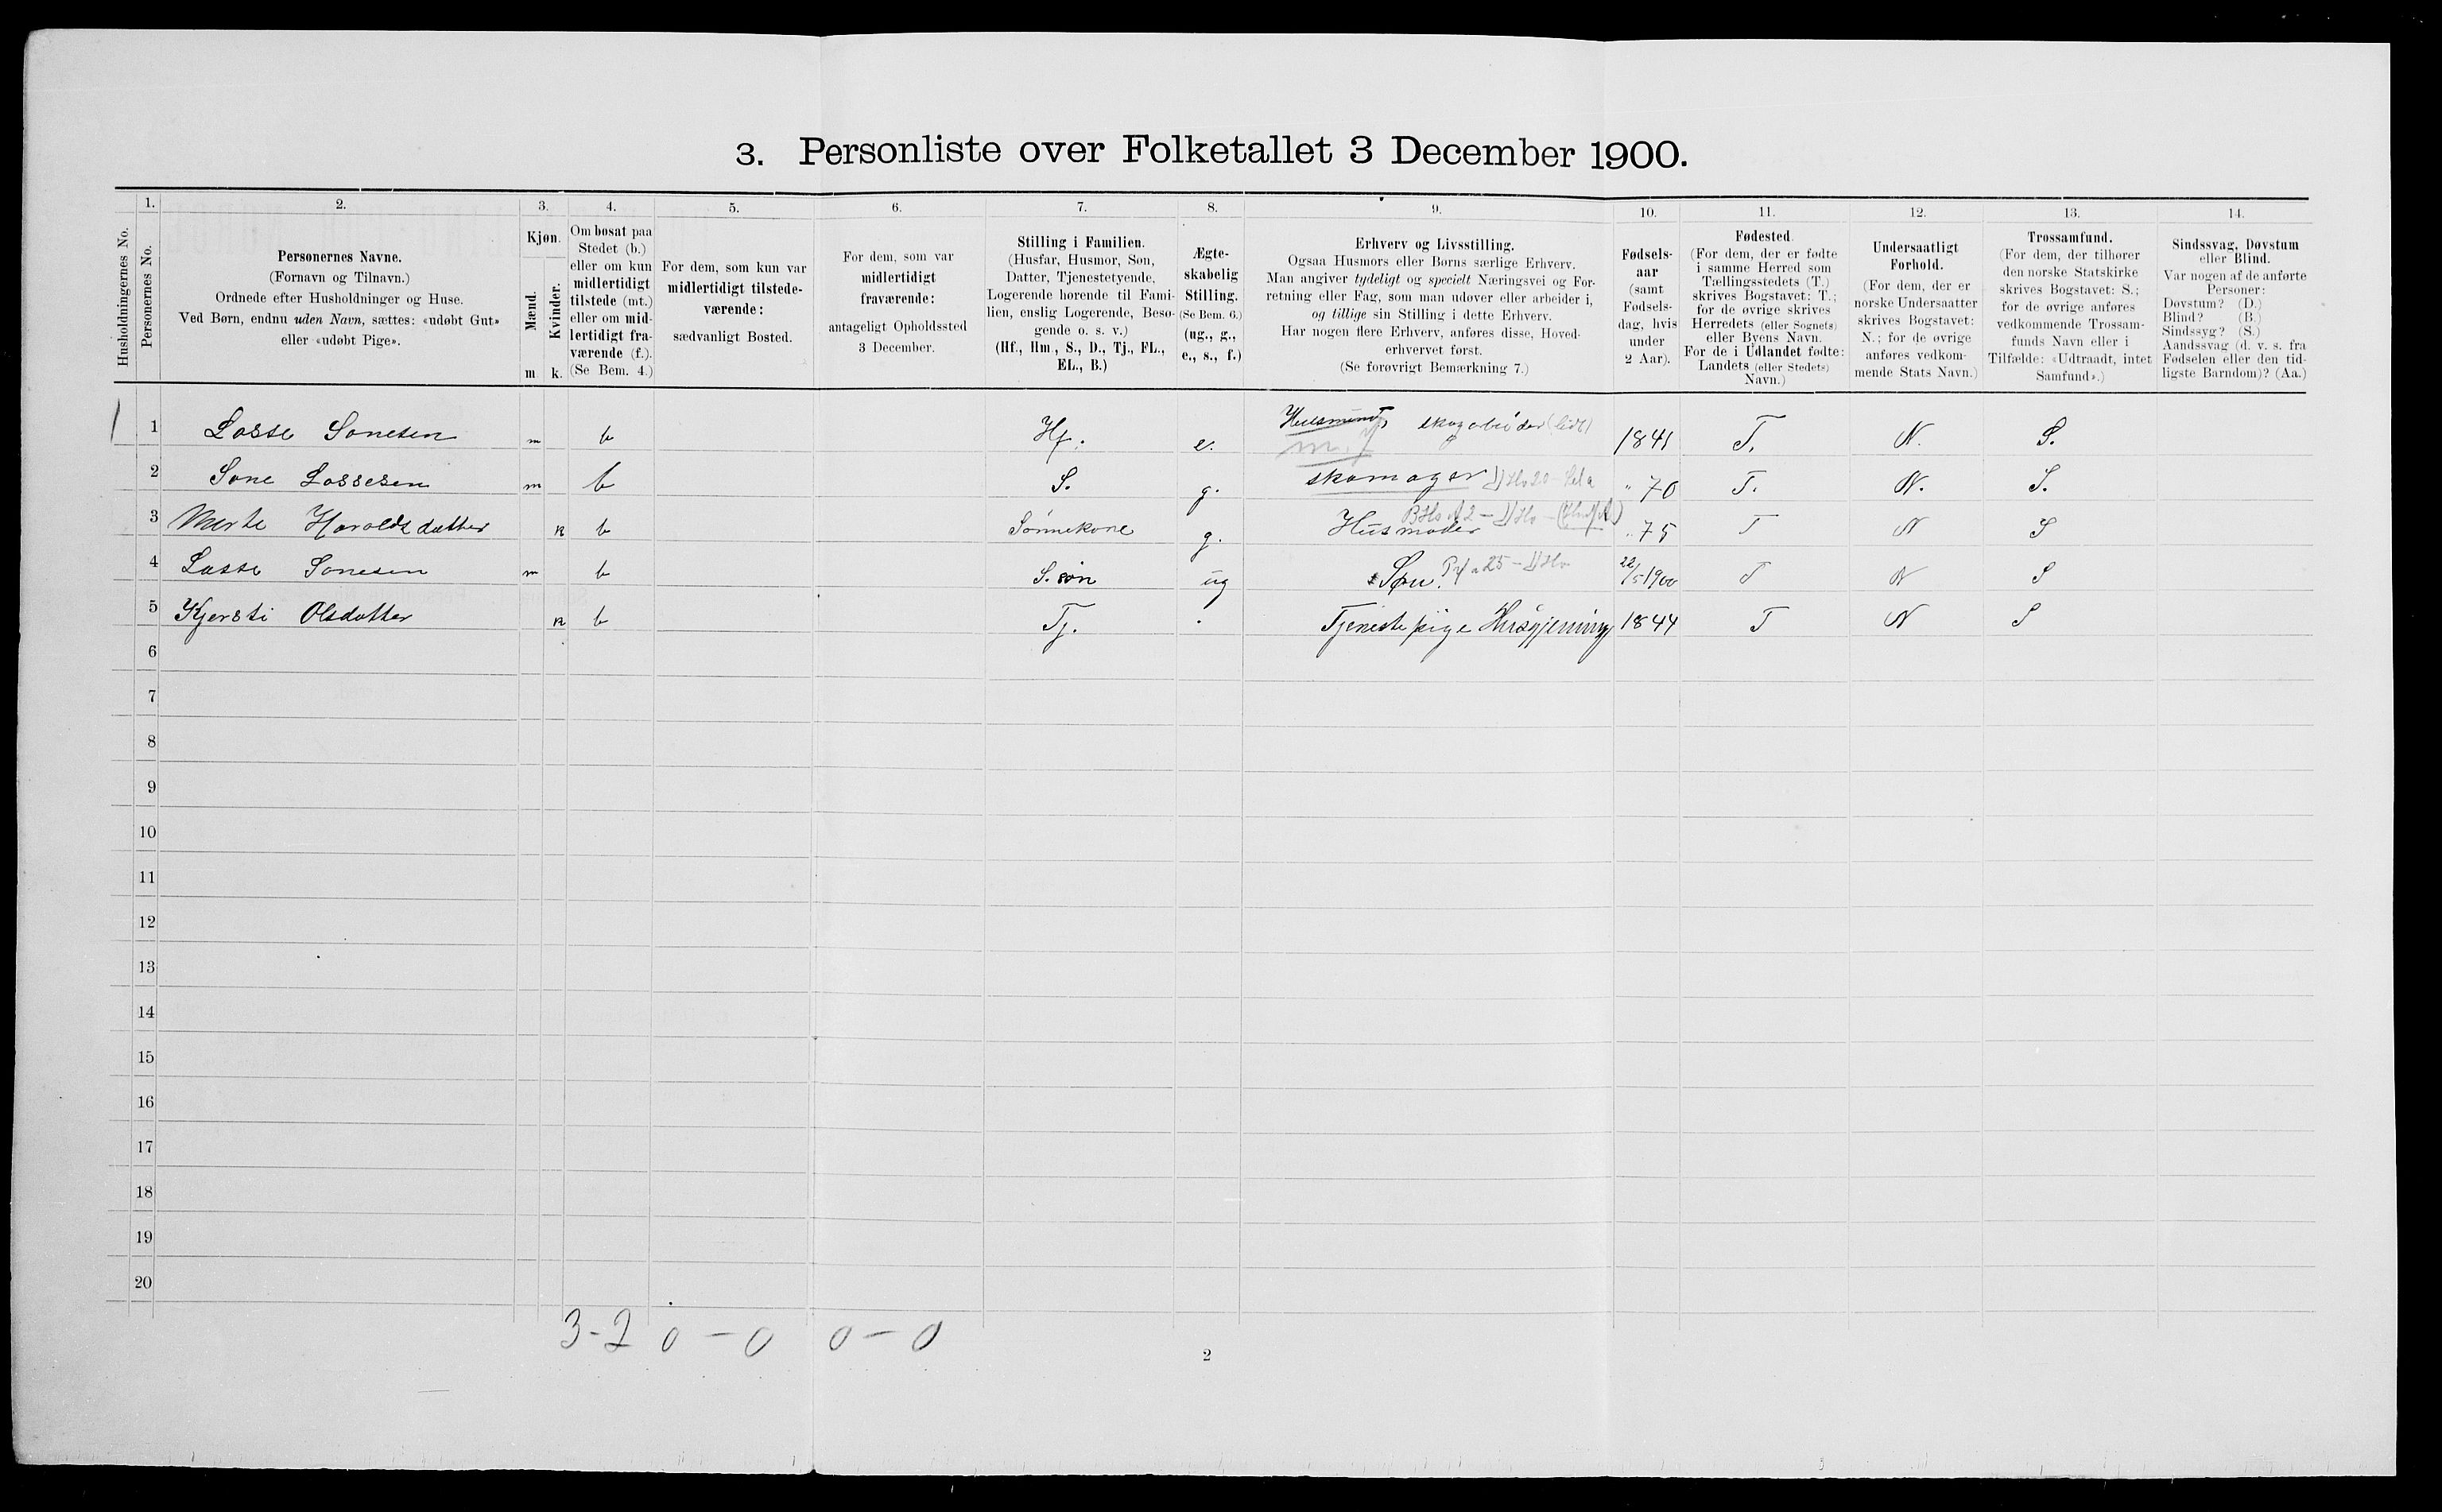 3. Personliste over Folketallet 3 December 1900.
Husholdningernes No.
1. Personernes No.
2. Personernes Navne.
(Fornavn og Tilnavn.)
Ordnede efter Husholdninger og Huse.
Ved Børn, endnu uden Navn, sættes: «udøbt Gut»
eller «udøbt Pige».
3. Kjøn.
Mænd. Kvinder.
m. k.
4. Om bosat paa
Stedet (b.)
eller om kun
midlertidigt
tilstede (mt.)
eller om mid-
lertidigt fra-
værende (f.).
(Se Bem. 4.)
5. For dem, som kun var
midlertidigt tilstede-
værende:
sædvanligt Bosted.
6. For dem, som var
midlertidigt
fraværende:
antageligt Opholdssted
3 December.
7. Stilling i Familien.
(Husfar, Husmor, Søn,
Datter, Tjenestetyende,
Logerende hørende til Fami-
lien, enslig Logerende, Besø-
gende o. s. v.)
(Hf., Hm., S., D., Tj., FL.,
EL., B.)
8. Ægte-
skabelig
Stilling.
(Se Bem. 6.)
(ug., g.,
e., s., f.)
9. Erhverv og Livsstilling.
Ogsaa Husmors eller Børns særlige Erhverv.
Man angiver tydeligt og specielt Næringsvei og For-
retning eller Fag, som man udøver eller arbeider i,
og tillige sin Stilling i dette Erhverv.
Har nogen flere Erhverv, anføres disse, Hoved-
erhvervet først.
(Se forøvrigt Bemærkning 7.)
10. Fødsels-
aar
(samt
Fødsels-
dag, hvis
under
2 Aar).
11. Fødested.
(For dem, der er fødte
i samme Herred som
Tællingsstedets (T.)
skrives Bogstavet: T.;
for de øvrige skrives
Herredets (eller Sognets)
eller Byens Navn.
For de i Udlandet fødte:
Landets (eller Stedets)
Navn.)
12. Undersaatligt
Forhold.
(For dem, der er
norske Undersaatter
skrives Bogstavet:
N.; for de øvrige
anføres vedkom-
mende Stats Navn.)
13. Trossamfund.
(For dem, der tilhører
den norske Statskirke
skrives Bogstavet: S.;
for de øvrige anføres
vedkommende Trossam-
funds Navn eller i
Tilfælde: «Udtraadt, intet
Samfund».)
14. Sindssvag, Døvstum
eller Blind.
Var nogen af de anførte
Personer:
Døvstum? (D.)
Blind? (B.)
Sindssyg? (S.)
Aandssvag (d. v. s. fra
Fødselen eller den tid-
ligste Barndom)? (Aa.)
1 Lasse Sonesen m b Hf. e. Husmand, skogarbeider (lidt) 1841 T. N. S.
2 Sone Lassesen m b S. g. skomager " 70 T. N. S.
3 Merte Haroldsdatter k b Sønnekone g. Husmoder " 75 T N S
4 Lasse Sonesen m b S. søn ug Søn. 22/5 1900 T N S
5 Kjersti Olsdatter k b Tj. Tjenestepige Husgjerning 1844 T N S
6
7
8
9
10
11
12
13
14
15
16
17
18
19
20
3-2 0-0 0-0
2